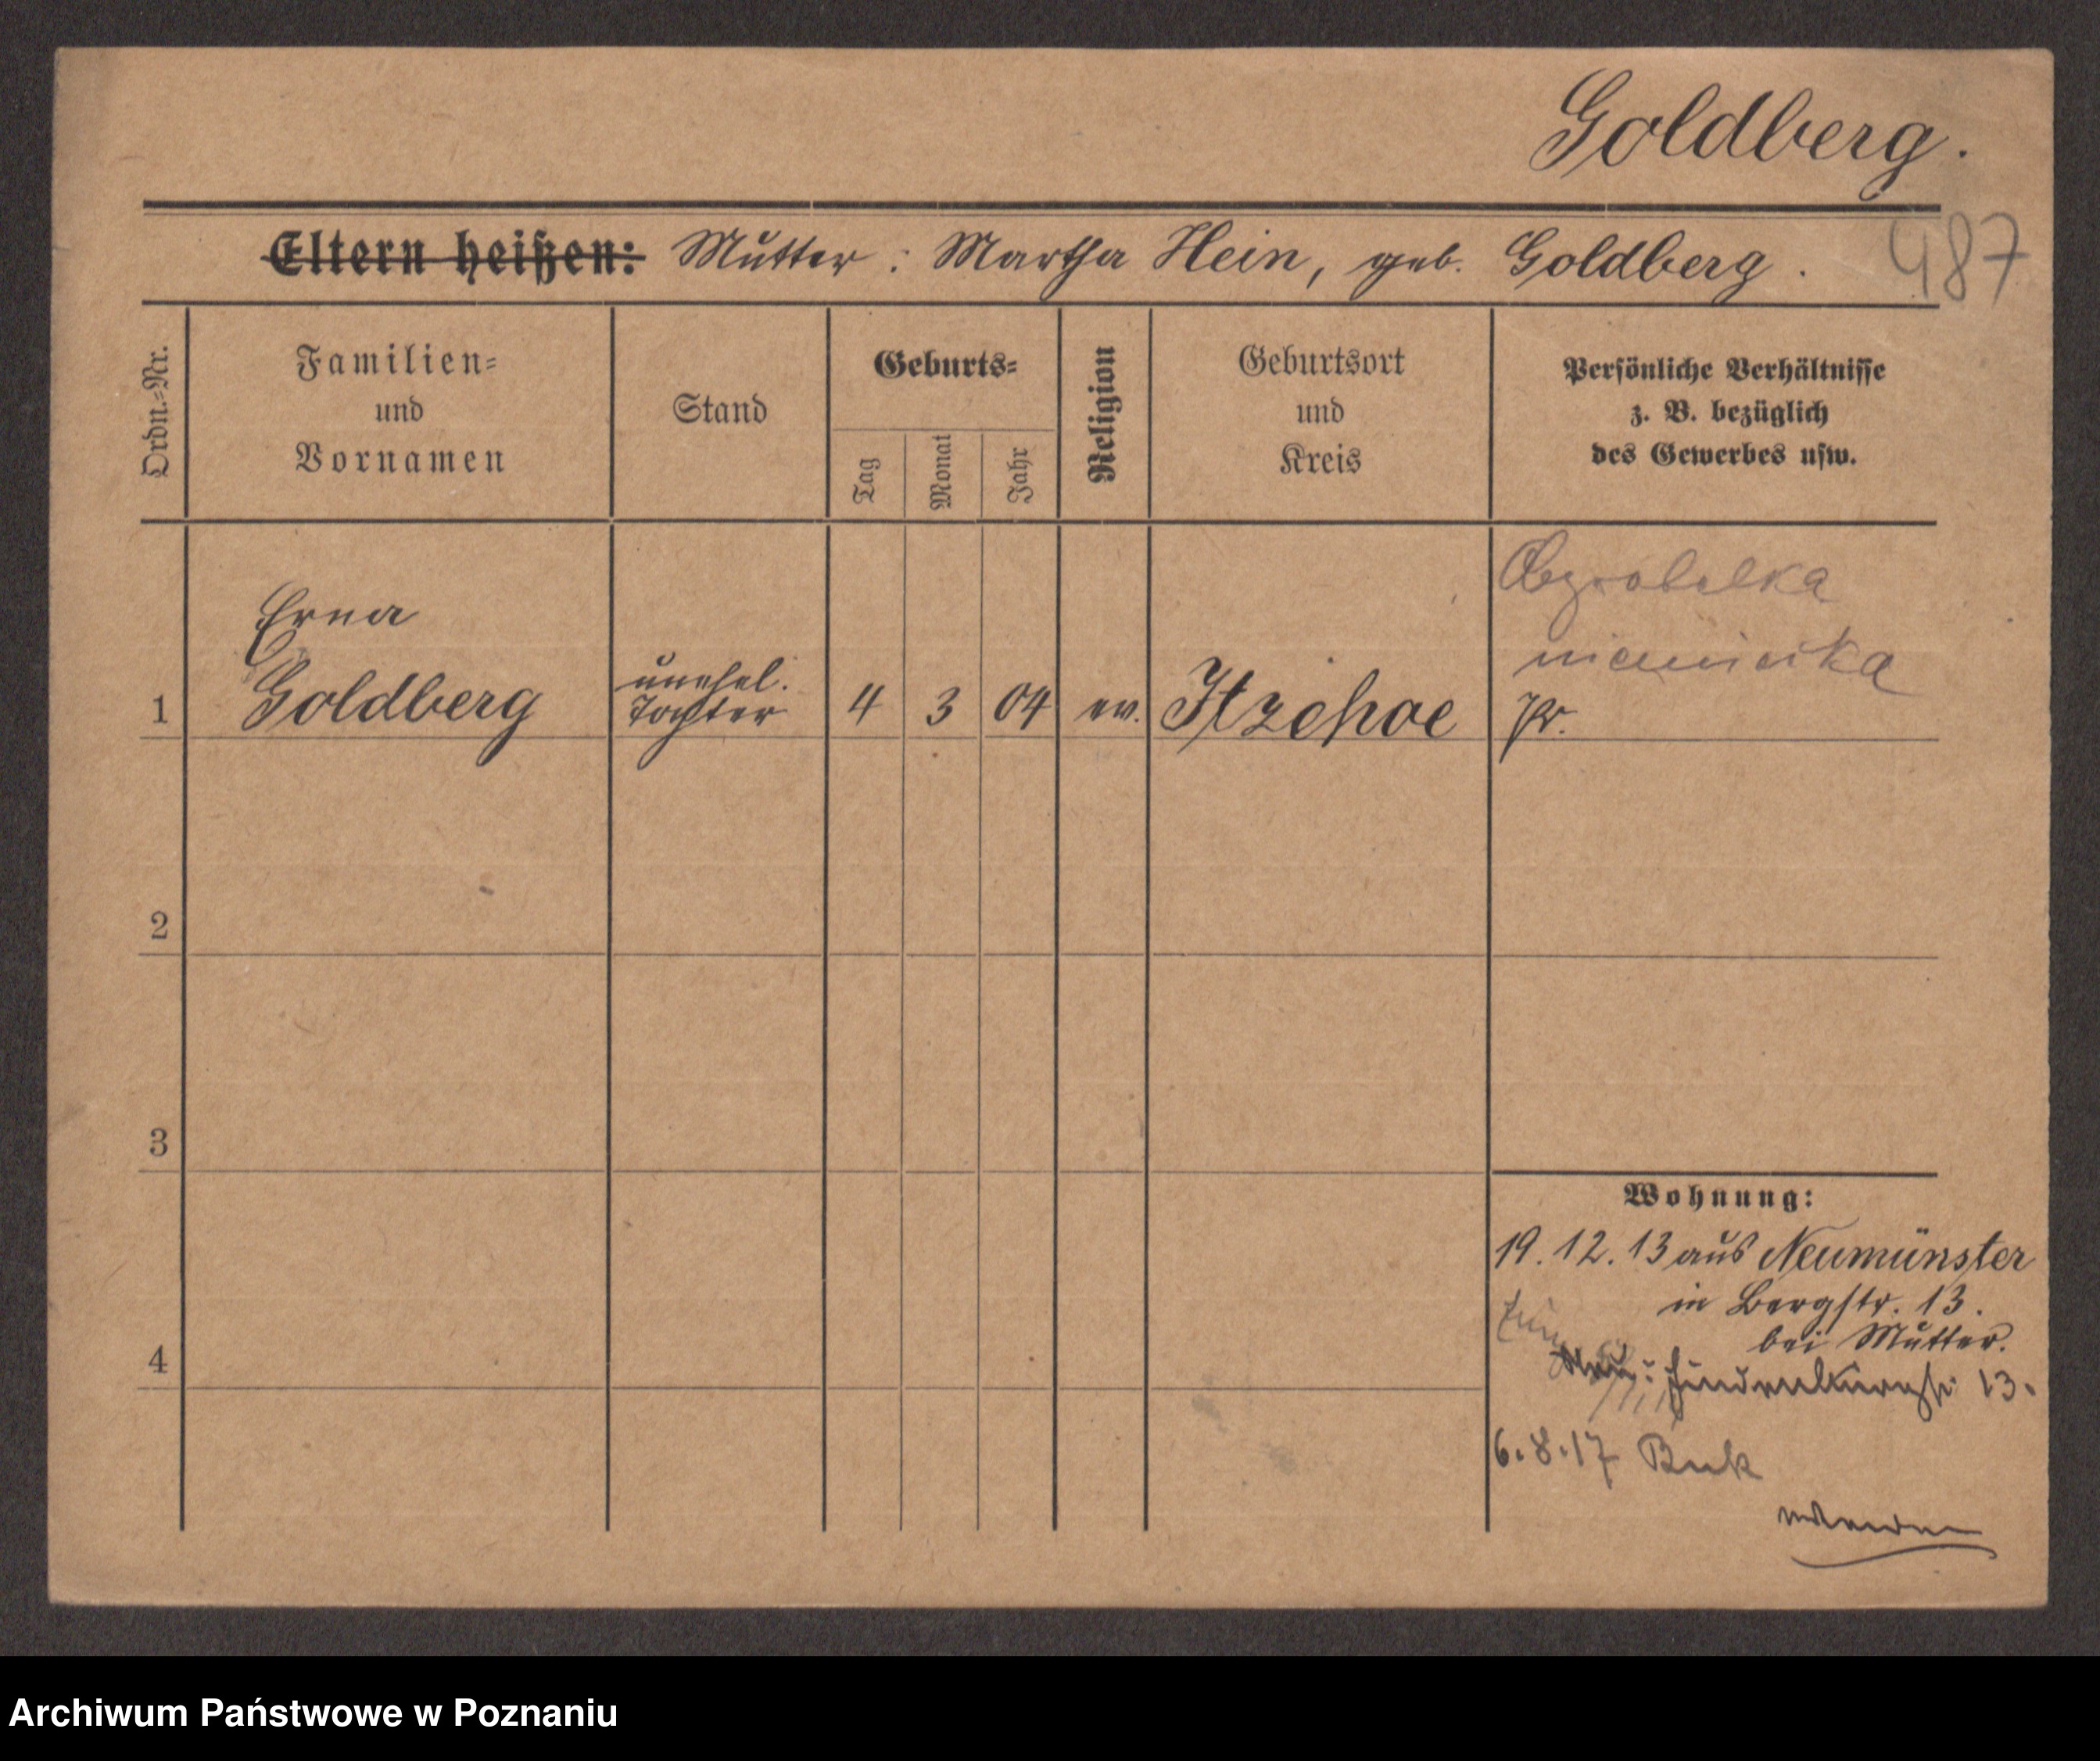 Goldberg.
487
Eltern heißen: Mutter: Martha Hein, geb. Goldberg.
Ordn.-Nr.
Familien-
und
Vornamen
Stand
Geburts-
Tag
Monat
Jahr
Religion
Geburtsort
und
Kreis
Persönliche Verhältnisse
z. B. bezüglich
des Gewerbes usw.
Erna
1 Goldberg
unehel.
Tochter
4 3 04 ev. Itzehoe
Pr.
2
3
4
Wohnung:
19.12.13 aus Neumünster
in Bergstr. 13.
bei Mutter.
13.
6.8.17 Buk
Archiwum Państwowe w Poznaniu